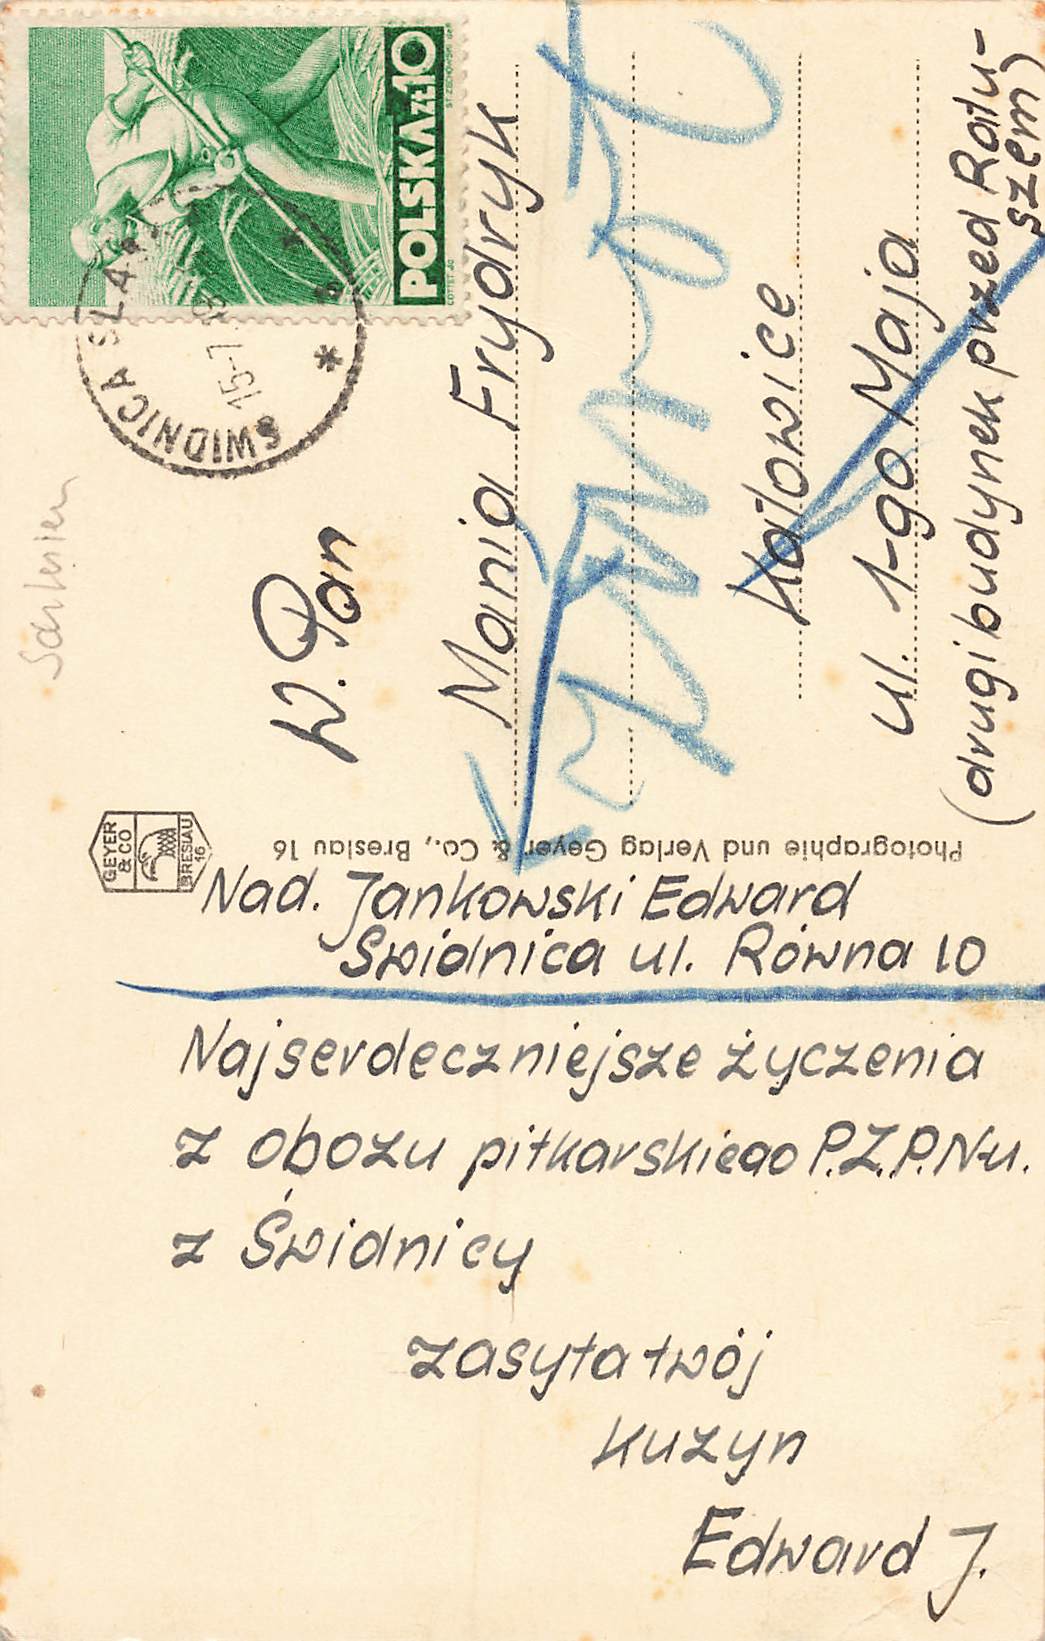 POLSKA ZŁ 10
ŚWIDNICA ŚLĄ
15-7
W. Pan
Mania Frydryk
Katowice
ul. 1-go Maja
(drugi budynek przed Ratu-
szem)
Zwrot
GEYER
& CO
BRESLAU
16
Photographie und Verlag Geyer & Co., Breslau 16
Nad. Jankowski Edward
Świdnica ul. Równa 10
Najserdeczniejsze życzenia
z obozu piłkarskiego P.Z.P.N-u.
z Świdnicy
zasyła twój
Kuzyn
Edward J.